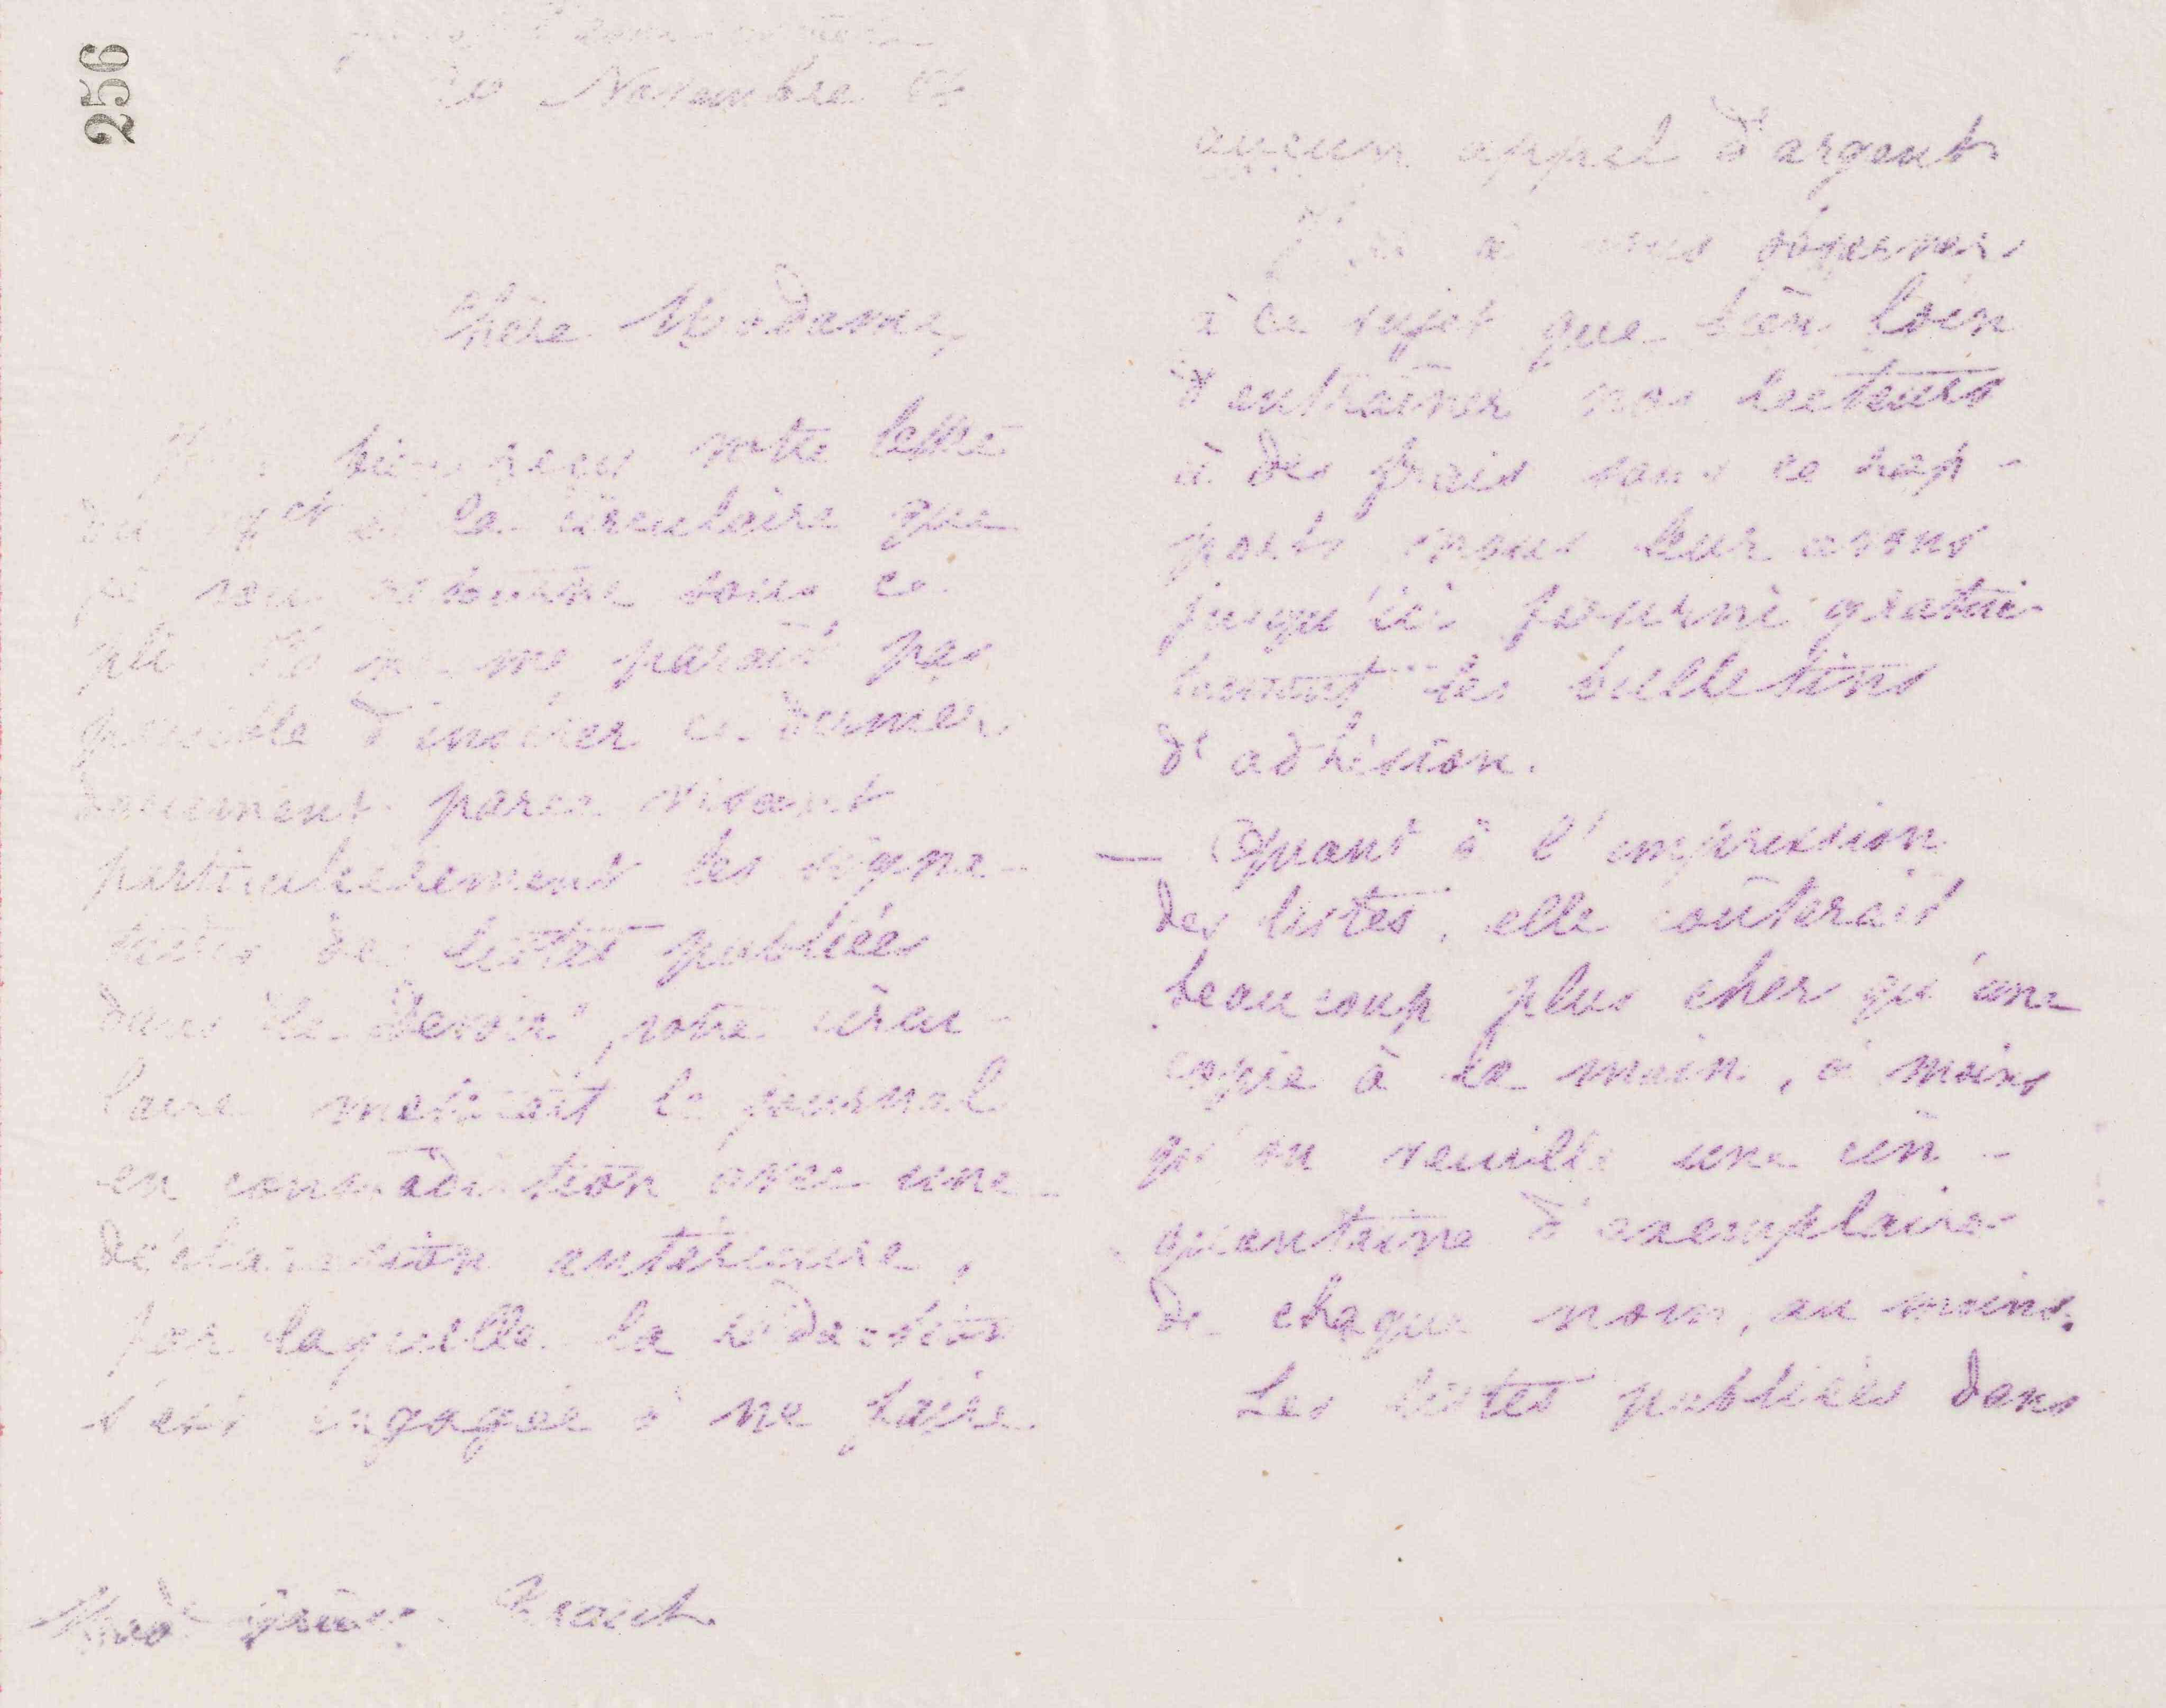 256
Novembre
Chère Madame,
bien reçu votre lettre
du ct et la circulaire que
je vous retourne sous ce
pli. Il ne me paraît pas
possible d'insérer ce dernier
document parce visant
particulièrement les signa-
taires de listes publiées
dans "le Devoir", votre circu-
laire mettrait le journal
en contradiction avec une
déclaration antérieure,
par laquelle la rédaction
s'est engagée à ne faire
aucun appel d'argent.
à vous observer
à ce sujet que bien loin
d'entraîner nos lecteurs
à des frais sous ce rap-
port, nous leur avons
jusqu'ici fourni gratui-
tement les bulletins
d'adhésion.
— Quant à l'impression
des listes, elle coûterait
beaucoup plus cher qu'une
copie à la main, à moins
qu'on veuille une cin-
quantaine d'exemplaires
de chaque nom, au moins.
Les listes publiées dans
Made